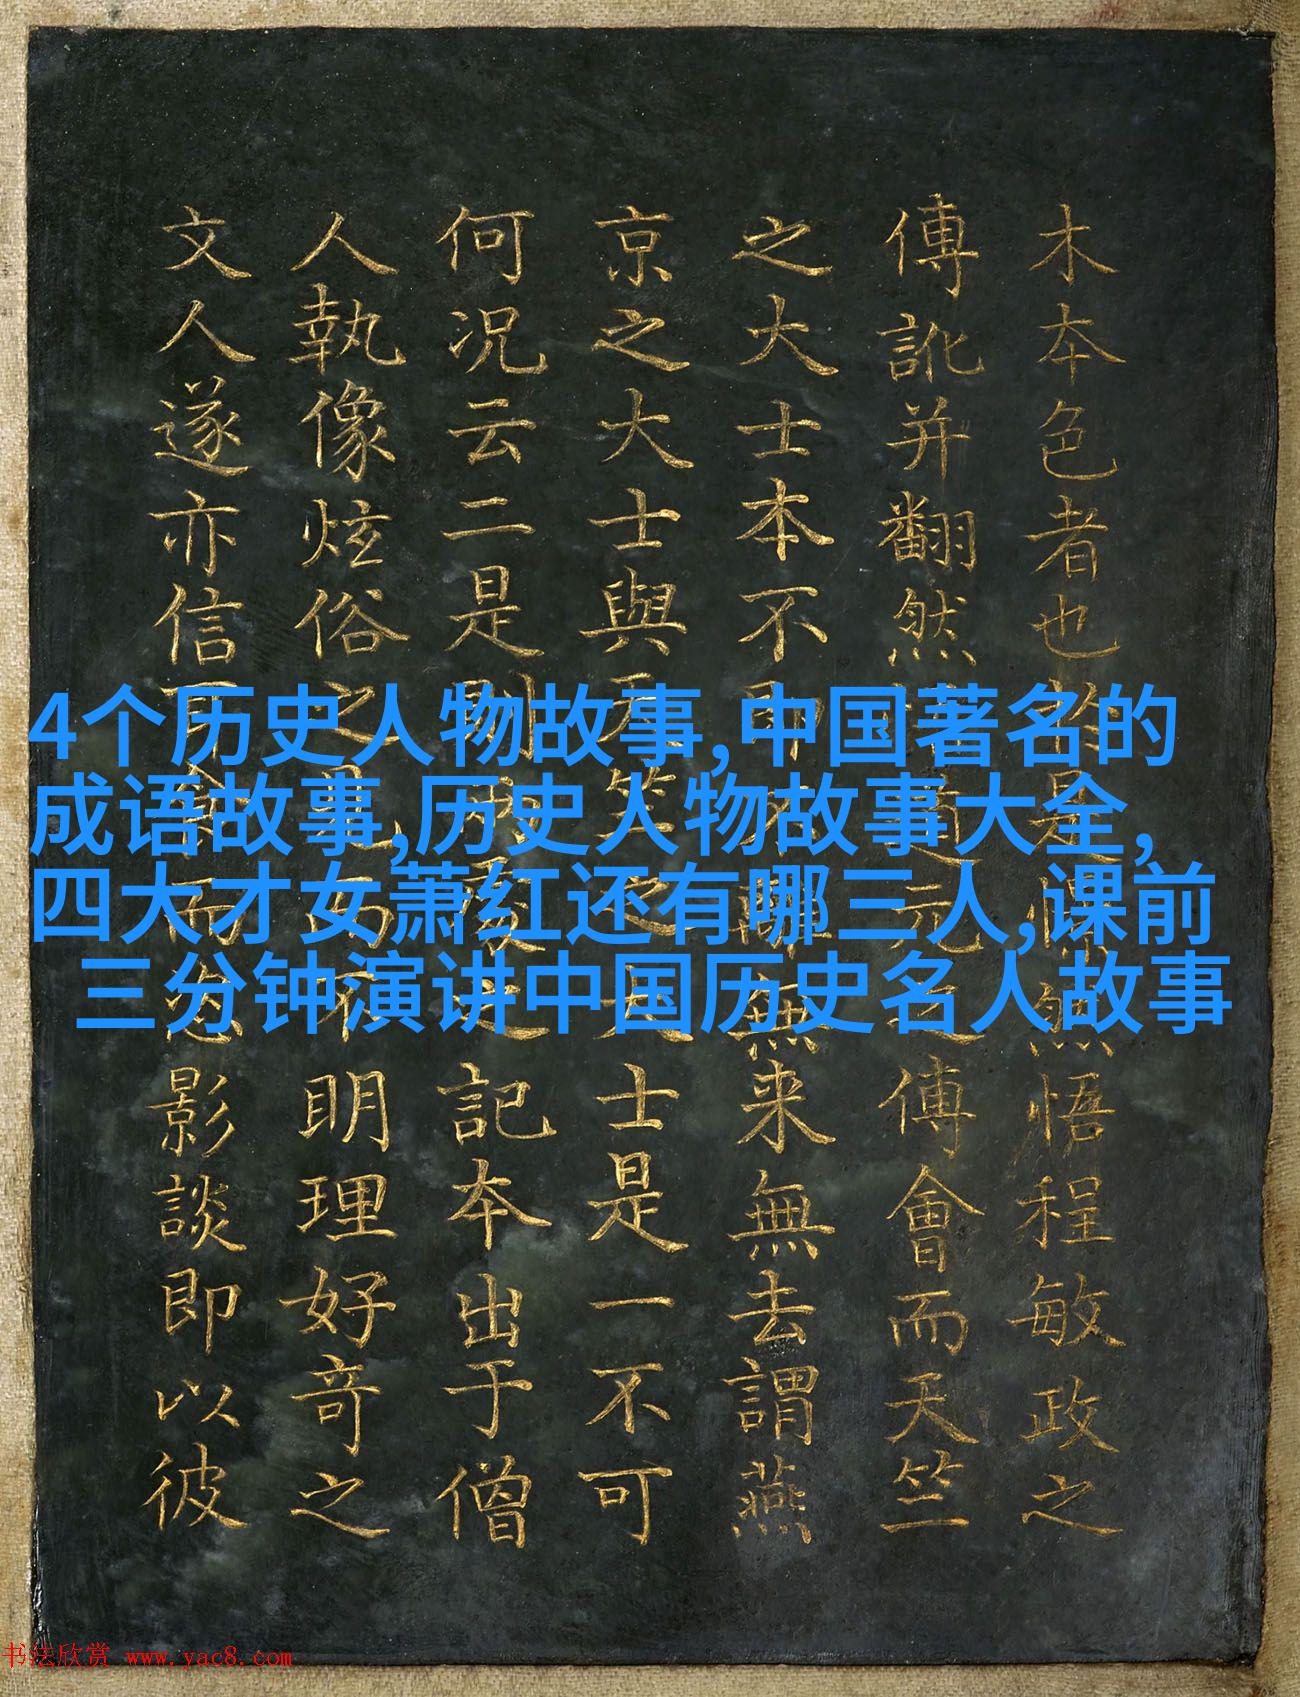 木夲色者也是然悟程敏政之
傳訛并翻然之元傅會而天竺
之大士本不即不離無来無去謂燕
京之大士與天竺之大士是一不可
何况云二是則之記夲出于僧
人執像炫俗之見而不明理好竒之
文人遂亦信耳食而影談即以彼
4个历史人物故事,中国著名的
成语故事,历史人物故事大全,
四大才女萧红还有哪三人,课前
三分钟演讲中国历史名人故事
书法欣赏 www.yac8.com